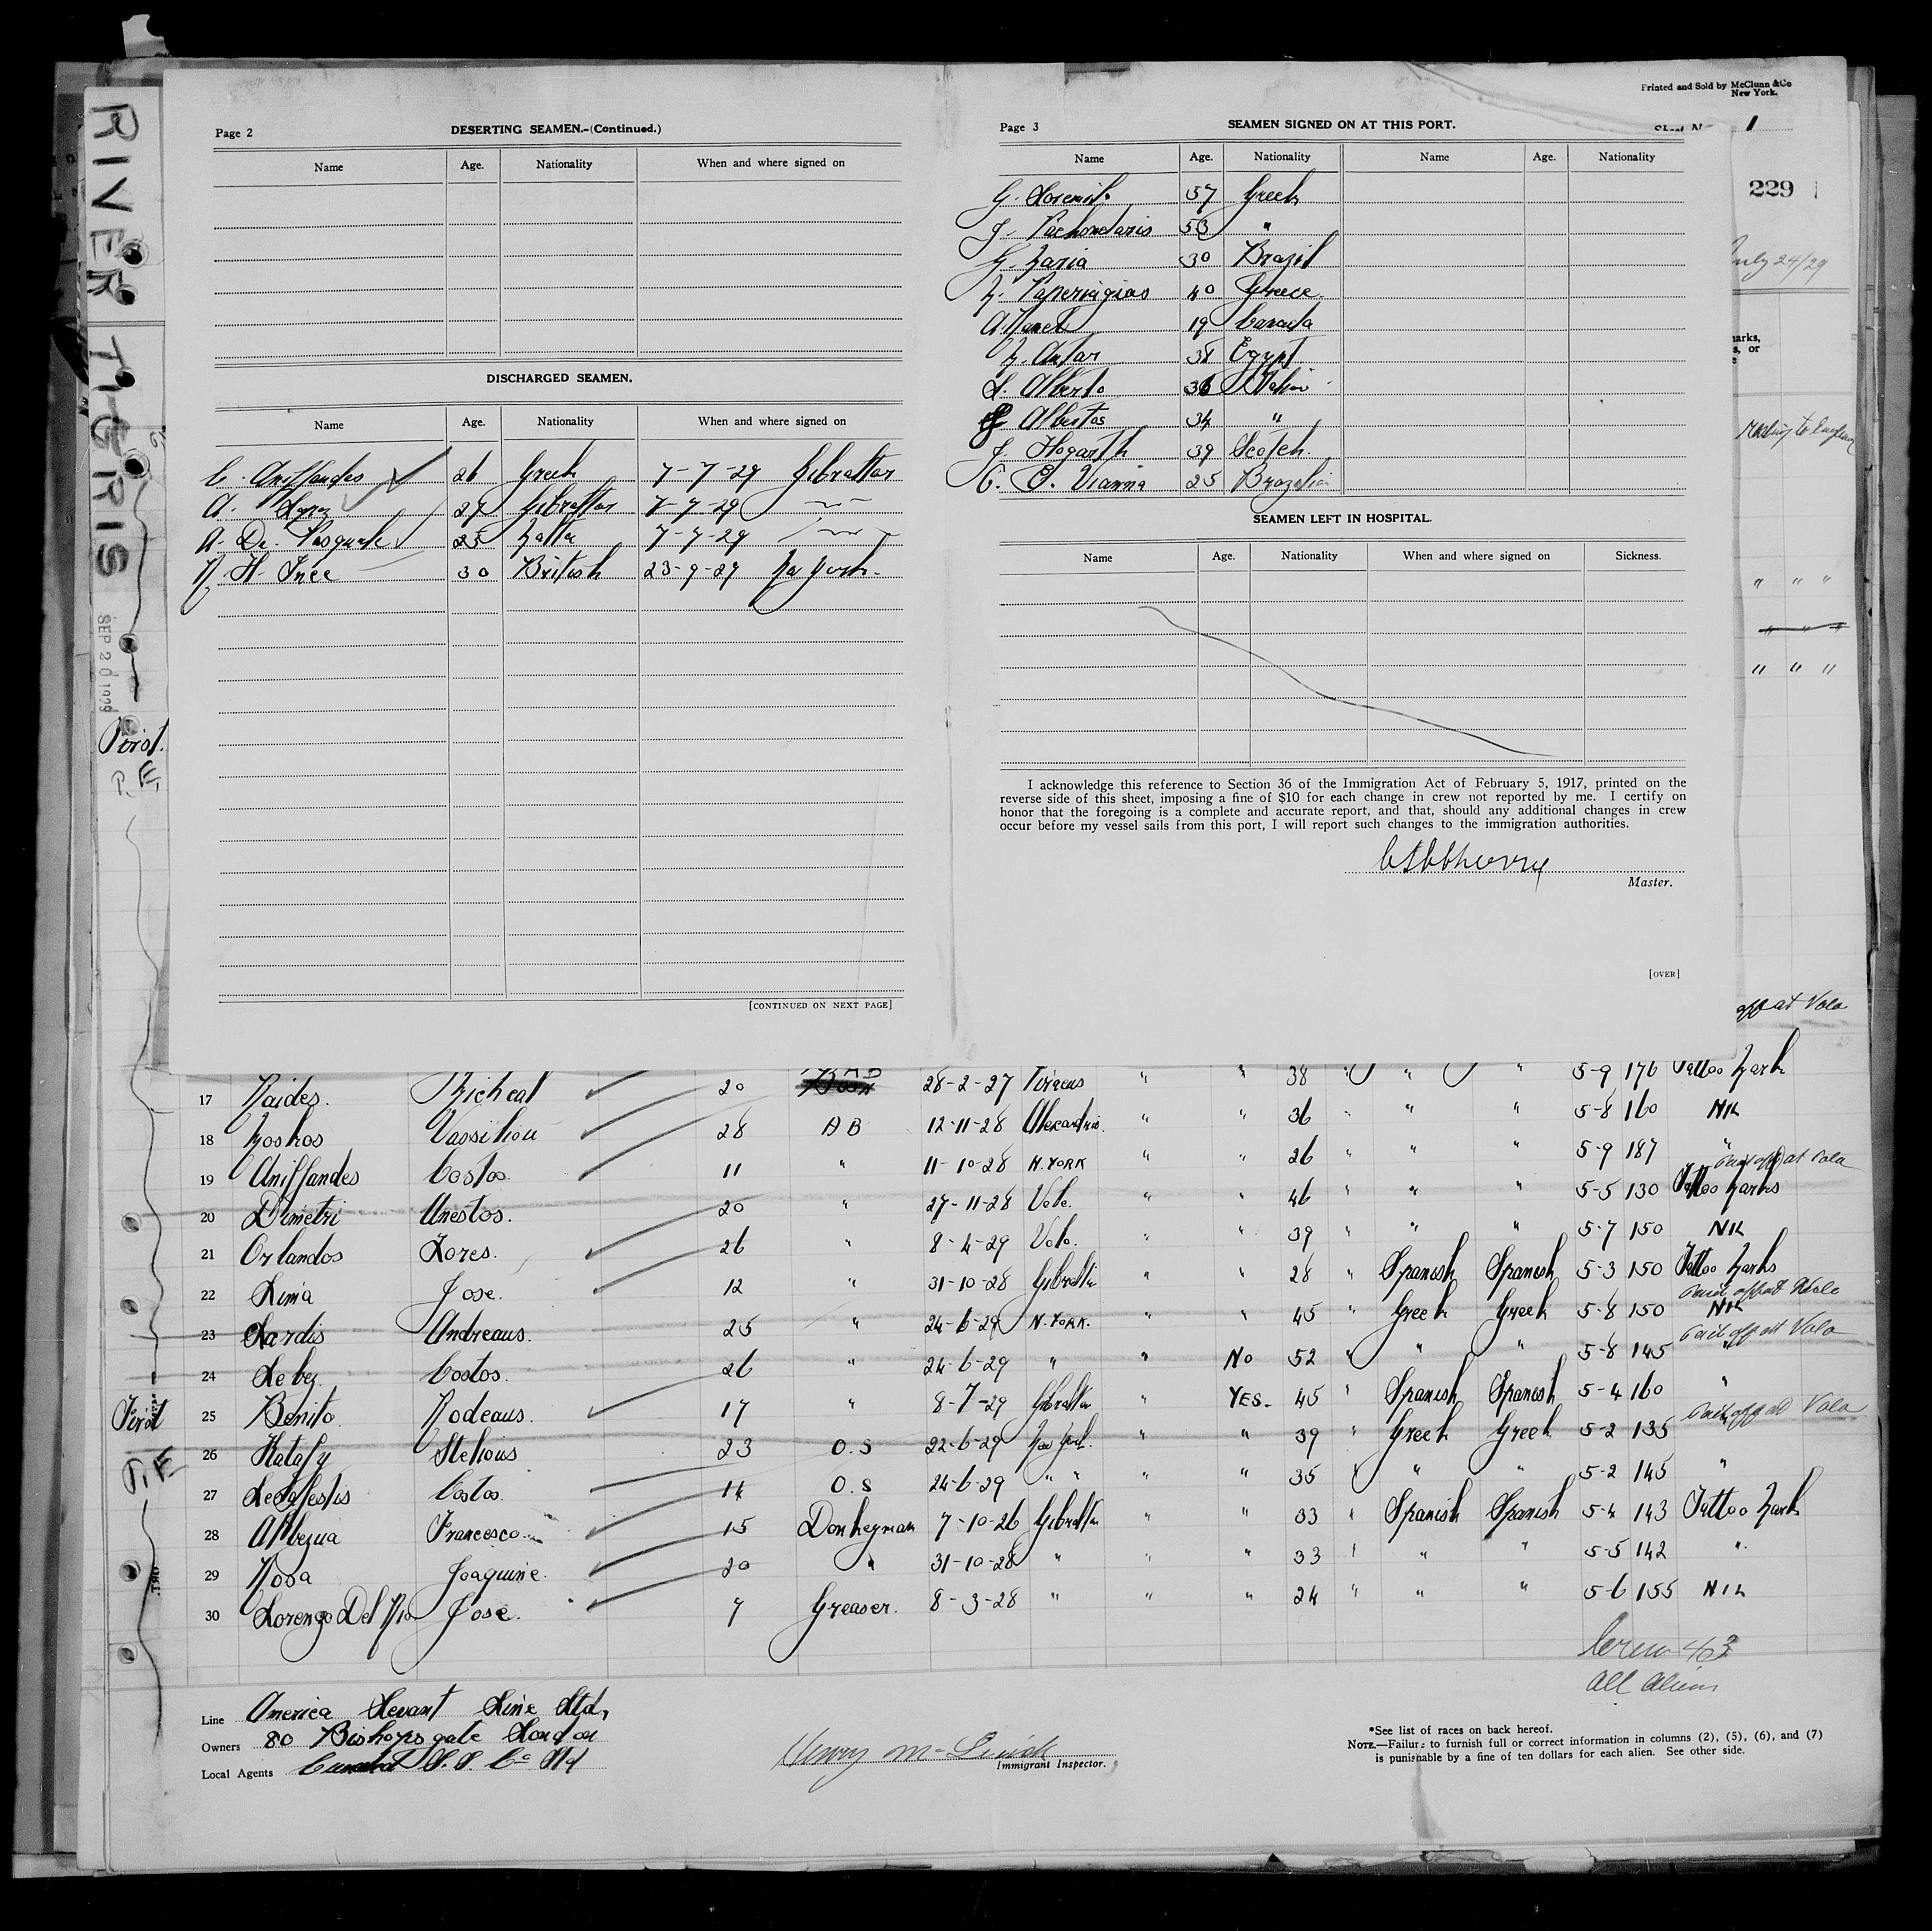 Printed and Sold by McClunn & Co
New York.
RIVER TIGRIS
SEP 20 1929
Page 2
DESERTING SEAMEN.-(Continued.)
Name Age. Nationality When and where signed on
DISCHARGED SEAMEN.
Name Age. Nationality When and where signed on
C. Aniffandes 26 Greek 7-7-29 Gibraltar
A. Lopez 27 Gibraltar 7-7-29
A. De. Pasquale 25 Malta 7-7-29
30 British 23-9-29 New York.
[CONTINUED ON NEXT PAGE]
Page 3
SEAMEN SIGNED ON AT THIS PORT.
1
Name Age. Nationality Name Age. Nationality
G. 37 Greek
J. Pachondaris 53 "
G. Maria 30 Brazil
M. 40 Greece
A. 19 Canada
M. Antar 38 Egypt
L. Alberto 36 Italian
Albertos 34 "
J. Hogarth 39 Scotch.
C. P. Vianna 25 Brazilian
SEAMEN LEFT IN HOSPITAL.
Name Age. Nationality When and where signed on Sickness.
I acknowledge this reference to Section 36 of the Immigration Act of February 5, 1917, printed on the
reverse side of this sheet, imposing a fine of $10 for each change in crew not reported by me. I certify on
honor that the foregoing is a complete and accurate report, and that, should any additional changes in crew
occur before my vessel sails from this port, I will report such changes to the immigration authorities.
Master.
[OVER]
229
July 24/29
" " "
" " "
" " "
off at Volo
17 Naides. Micheal 20 AB 28-2-27 Piraeus " " 38 " " " 5-9 176 Tattoo Mark
18 Moskos Vassiliou 28 AB 12-11-28 Alexandria. " " 36 " " " 5-8 160 Nil
19 Aniffandes Costos. 11 " 11-10-28 N.YORK " " 26 " " " 5-9 187 "
Paid off at Volo
20 Dimetri Anestos. 20 " 27-11-28 Volo. " " 46 " " " 5-5 130 Tattoo Marks
21 Orlandos Lores. 26 " 8-4-29 Volo. " " 39 " " " 5-7 150 Nil
22 Lima Jose. 12 " 31-10-28 Gibraltar " " 28 " Spanish Spanish 5-3 150 Tattoo Marks
Paid off at Volo
23 Lardis Andreaus. 25 " 24-6-29 N.YORK. " " 45 " Greek Greek 5-8 150 Nil
Paid off at Volo
24 Costos. 26 " 24-6-29 " " No 52 " " " 5-8 145 "
First 25 Benito. Rodeaus. 17 " 8-7-29 Gibraltar " YES. 45 " Spanish Spanish 5-4 160 "
Paid off at Volo
P.E. 26 Katafy Stelious 23 O.S 22-6-29 New York. " " 39 " Greek Greek 5-2 135
27 Costos 14 O.S 24-6-29 " " " " 35 " " " 5-2 145 "
28 Francesco 15 Donkeyman 7-10-26 Gibraltar " " 33 " Spanish Spanish 5-4 143 Tattoo Mark
29 Rosa Joaquine. 20 " 31-10-28 " " " 33 " " " 5-5 142 "
30 Lorenzo Del Rio Jose. 7 Greaser. 8-3-28 " " " 24 " " " 5-6 155 Nil
Crew 43
All Aliens
Line America Levant Line Ltd,
Owners 80 Bishopsgate London
Local Agents Cunard S.S. Co Ltd
Immigrant Inspector.
*See list of races on back hereof.
NOTE.—Failure to furnish full or correct information in columns (2), (5), (6), and (7)
is punishable by a fine of ten dollars for each alien. See other side.